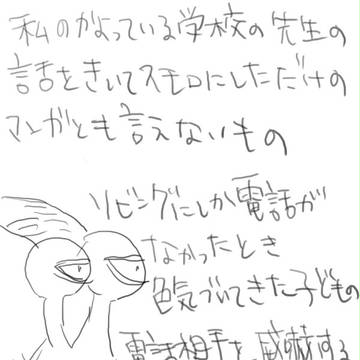 私のかよっている学校の先生の
話をきいてスモロにしただけの
マンガとも言えないもの
リビングにしか電話が
なかったとき
色気づいてきた子どもの
電話相手を威嚇する